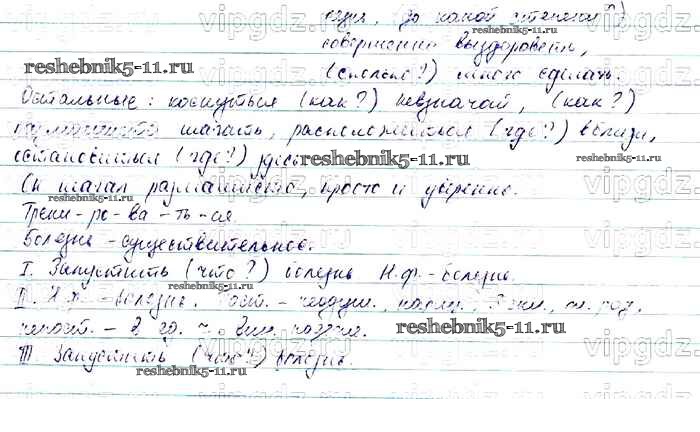 до какой степени?)
совершенно выздороветь,
(сколько?) много сделать.
Остальные: коснуться (как?) невзначай, (как?)
размашисто шагать, расположиться (где?) вблизи,
остановиться (где?) здесь
Он шагал размашисто, просто и уверенно.
Трени-ро-ва-ть-ся.
Болезнь - существительное.
I. Запустить (что?) болезнь Н.ф.-болезнь.
II. - болезнь. Пост. - неодуш., нариц., 3 скл., ж. род,
непост. - в ед. ч., Вин. падеж.
III. Запустить (что?) болезнь.
reshebnik5-11.ru
reshebnik5-11.ru
reshebnik5-11.ru
reshebnik5-11.ru
reshebnik5-11.ru
reshebnik5-11.ru
reshebnik5-11.ru
vipgdz.ru